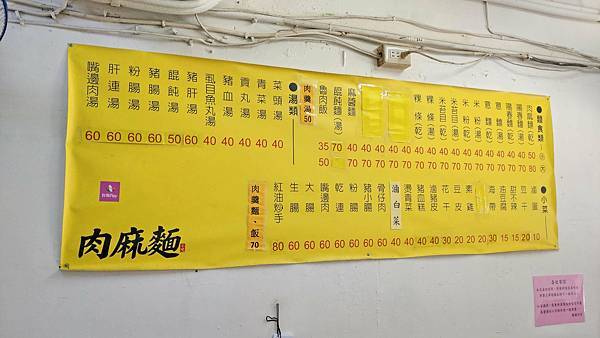 ●麵食類 小 大
肉麻麵(乾) 50 80
陽春麵(湯) 40 70
陽春麵(乾) 40 70
意麵(湯) 40 70
意麵(乾) 40 70
米粉(湯) 40 70
米粉(乾) 40 70
米苔目(湯) 40 70
米苔目(乾) 40 70
粿條(湯) 40 70
粿條(乾) 40 70
麻醬麵
餛飩麵(湯) 70
魯肉飯 35 50
●湯類
肉羹湯 50
菜頭湯 40
青菜湯 40
貢丸湯 40
豬血湯 40
虱目魚丸湯 40
豬肝湯 60
餛飩湯 50
豬腸湯 60
粉腸湯 60
肝連湯 60
嘴邊肉湯 60
●小菜
滷蛋 10
豆干 20
甜不辣 15
油豆腐 15
海帶 30
素雞 20
豆皮 20
花干 30
滷豬皮 40
豬血糕 40
燙青菜 40
油白菜 40
骨仔肉 60
豬小腸 60
粉腸 60
乾連 60
嘴邊肉 60
大腸 60
生腸 60
紅油炒手 80
肉羹麵、飯 70
肉麻麵